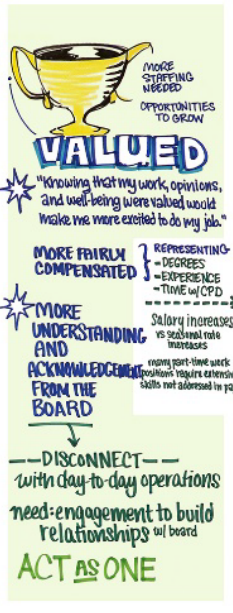 MORE
STAFFING
NEEDED
OPPORTUNITIES
TO GROW
VALUED
"Knowing that my work, opinions,
and well-being were valued would
make me more excited to do my job."
MORE FAIRLY
COMPENSATED
REPRESENTING
- DEGREES
- EXPERIENCE
- TIME w/ CPD
Salary increases
vs seasonal rate
increases
many part-time work
positions require extensi
skills not addressed in pa
MORE
UNDERSTANDING
AND
ACKNOWLEDGEMENT
FROM THE
BOARD
DISCONNECT
with day-to-day operations
need: engagement to build
relationships w/ board
ACT AS ONE